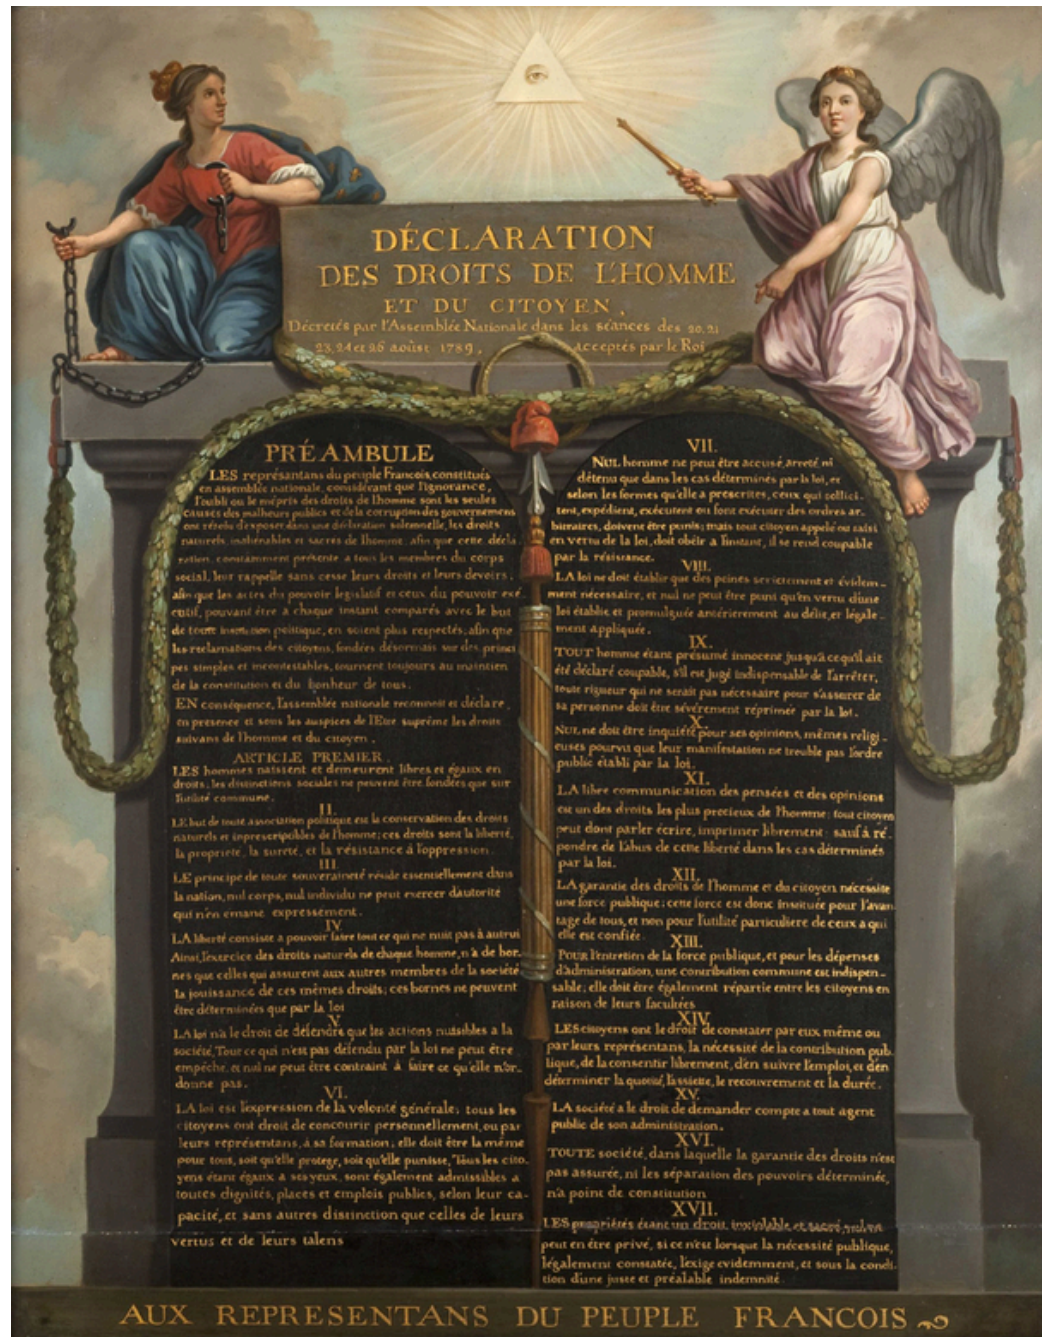 DÉCLARATION
DES DROITS DE L'HOMME
ET DU CITOYEN,
Décretés par l'Assemblée Nationale dans les séances des 20. 21
23, 24 et 26 aoûst 1789, acceptés par le Roi
PRÉAMBULE
LES représantans du peuple Francois, constitués
en assemblée nationale, considérant que l'ignorance,
l'oubli ou le mépris des droits de l'homme sont les seules
causes des malheurs publics et de la corruption des gouvernemens
ont résolu d'exposer dans une déclaration solemnelle, les droits
naturels, inaliénables et sacrés de l'homme, afin que cette décla
ration, constamment présente a tous les membres du corps
social, leur rappelle sans cesse leurs droits et leurs devoirs,
afin que les actes du pouvoir legislatif et ceux du pouvoir exé
cutif, pouvant être a chaque instant comparés avec le but
de toute institution politique, en soient plus respectés, afin que
les reclamations des citoyens, fondées désormais sur des princi
pes simples et incontestables, tournent toujours au maintien
de la constitution et du bonheur de tous.
EN conséquence, l'assemblée nationale reconnoit et déclare,
en presence et sous les auspices de l'Etre suprême les droits
suivans de l'homme et du citoyen.
ARTICLE PREMIER.
LES hommes naissent et demeurent libres et égaux en
droits, les distinctions sociales ne peuvent être fondées que sur
l'utilité commune.
II.
LE but de toute association politique est la conservation des droits
naturels et inprescriptibles de l'homme; ces droits sont la liberté,
la propriété, la sureté, et la résistance à l'oppression.
III.
LE principe de toute souveraineté réside essentiellement dans
la nation, nul corps, nul individu ne peut exercer d'autorité
qui n'en emane expressément.
IV.
LA liberté consiste a pouvoir faire tout ce qui ne nuit pas à autrui
Ainsi, l'exercice des droits naturels de chaque homme, n'a de bor-
nes que celles qui assurent aux autres membres de la société
la jouissance de ces mêmes droits; ces bornes ne peuvent
être déterminées que par la loi
V.
LA loi n'a le droit de défendre que les actions nuisibles a la
société, Tout ce qui n'est pas défendu par la loi ne peut être
empêché, et nul ne peut être contraint à faire ce qu'elle n'or-
donne pas.
VI.
LA loi est l'expression de la volonté générale; tous les
citoyens ont droit de concourir personnellement, ou par
leurs représentans, à sa formation; elle doit être la même
pour tous, soit qu'elle protege, soit qu'elle punisse, Tous les cito-
yens étant égaux a ses yeux, sont également admissibles a
toutes dignités, places et emplois publics, selon leur ca-
pacité, et sans autres distinction que celles de leurs
vertus et de leurs talens
VII.
NUL homme ne peut être accusé, arreté, ni
détenu que dans les cas déterminés par la loi, et
selon les formes qu'elle a prescrites, ceux qui sollici-
tent, expédient, exécutent ou font exécuter des ordres ar-
bitraires, doivent être punis; mais tout citoyen appelé ou saisi
en vertu de la loi, doit obéir a l'instant, il se rend coupable
par la résistance.
VIII.
LA loi ne doit établir que des peines strictement et évidem-
ment nécessaire, et nul ne peut être puni qu'en vertu d'une
loi établie et promulguée antérierement au délit, et légale-
ment appliquée.
IX.
TOUT homme étant présumé innocent jusqu'a ce qu'il ait
été déclaré coupable, s'il est jugé indispensable de l'arrêter,
toute rigueur qui ne serait pas nécessaire pour s'assurer de
sa personne doit être sévérement réprimée par la loi.
X.
NUL ne doit être inquiété pour ses opinions, mêmes religi-
euses pourvu que leur manifestation ne trouble pas l'ordre
public établi par la loi.
XI.
LA libre communication des pensées et des opinions
est un des droits les plus precieux de l'homme; tout citoyen
peut dont parler écrire, imprimer librement: sauf à ré-
pondre de l'abus de cette liberté dans les cas déterminés
par la loi.
XII.
LA garantie des droits de l'homme et du citoyen nécessite
une force publique; cette force est donc instituée pour l'avan-
tage de tous, et non pour l'utilité particuliere de ceux a qui
elle est confiée.
XIII.
POUR l'entretien de la force publique, et pour les dépenses
d'administration, une contribution commune est indispen-
sable; elle doit être également répartie entre les citoyens en
raison de leurs facultées
XIV.
LES citoyens ont le droit de constater par eux même ou
par leurs représentans, la nécessité de la contribution pub-
lique, de la consentir librement, d'en suivre l'emploi, et d'en
déterminer la quotité, l'assiette, le recouvrement et la durée.
XV.
LA société a le droit de demander compte a tout agent
public de son administration.
XVI.
TOUTE société, dans laquelle la garantie des droits n'est
pas assurée, ni les séparation des pouvoirs déterminée,
n'a point de constitution
XVII.
LES propriétés étant un droit inviolable et sacré, nul ne
peut en être privé, si ce n'est lorsque la nécessité publique,
légalement constatée, l'exige evidemment, et sous la condi-
tion d'une juste et préalable indemnité.
AUX REPRESENTANS DU PEUPLE FRANCOIS